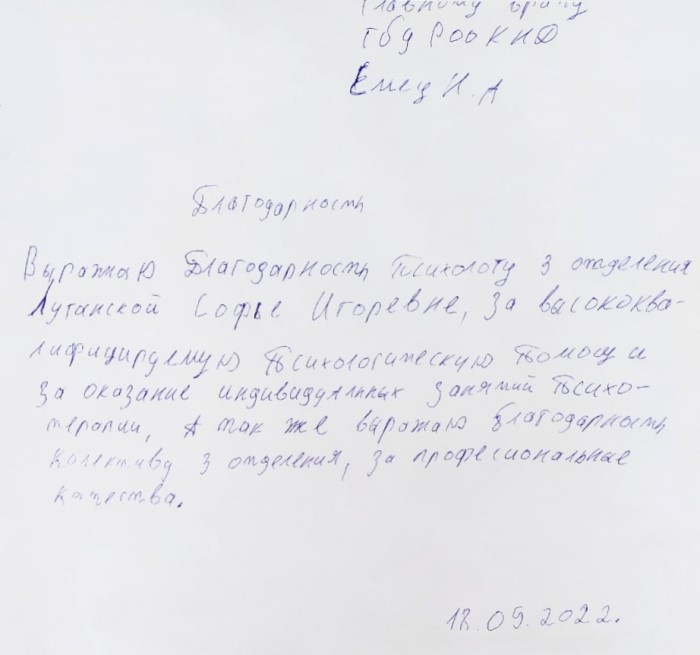 Главному врачу
ГБУ РООКНД
Емец Н.А
Благодарность
Выражаю Благодарность Психологу 3 отделения
Луганской Софье Игоревне, за высококва-
лифицируемую Психологическую Помощи
за оказание индивидуальных занятий Психо-
терапии, А так же выражаю Благодарность
Колективу 3 отделения, за професиональные
качества.
12.09.2022.